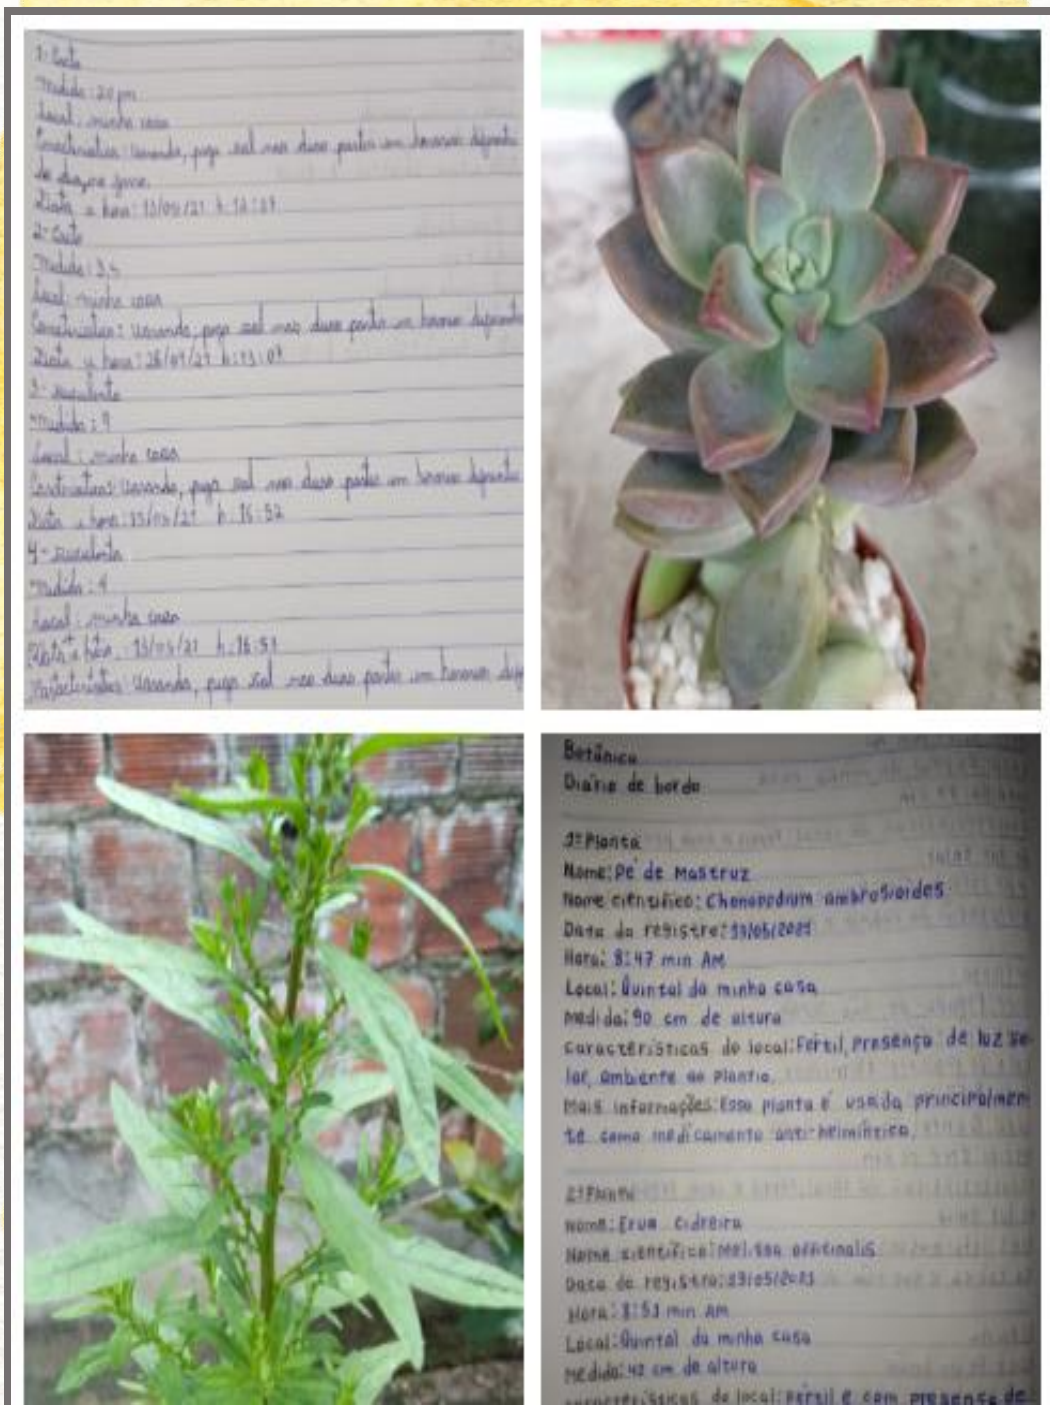 1- Cacto
Medida: 20 pm
Local: minha casa
Características: Varanda, pega sol nas duas partes em horarios diferente
Data e hora: 13/05/21 h:
2- Cacto
Medida: 3,5
Local: minha casa
Características: Varanda, pega sol nas duas partes em horarios diferente
Data e hora: h: 13:07
3- suculenta
Medida: 9
Local: minha casa
Características: Varanda, pega sol nas duas partes em horarios diferente
Data e hora: 13/05/21 h: 16:52
4- suculenta
Medida: 4
Local: minha casa
Data e hora: 13/05/21 h: 16:57
Características: Varanda, pega sol nas duas partes em horarios
Botânica
Diário de bordo
1ª Planta
Nome: Pé de Mastruz
Nome científico: Chenopodium ambrosioides
Data do registro: 13/05/2021
Hora: 8:47 min AM
Local: Quintal da minha casa
Medida: 90 cm de altura
Características do local: Fértil, Presença de luz so-
lar, ambiente ao Plantio.
Mais informações: Essa planta é usada principalmen-
te como medicamento anti-helmíntico.
2ª Planta
Nome: Erva Cidreira
Nome científico: Melissa officinalis
Data do registro: 13/05/2021
Hora: 8:51 min AM
Local: Quintal da minha casa
Medida: 42 cm de altura
Características do local: Fértil e com presença de